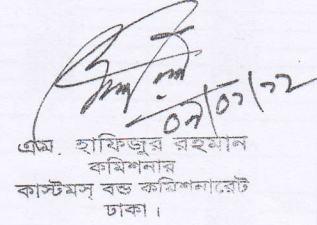 ০৭/০১/২২
এম. হাফিজুর রহমান
কমিশনার
কাস্টমস্ বন্ড কমিশনারেট
ঢাকা।